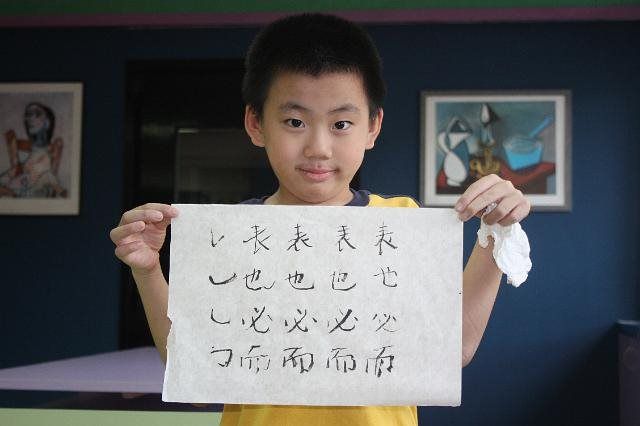 表表表表
也也也也
必必必必
而而而而